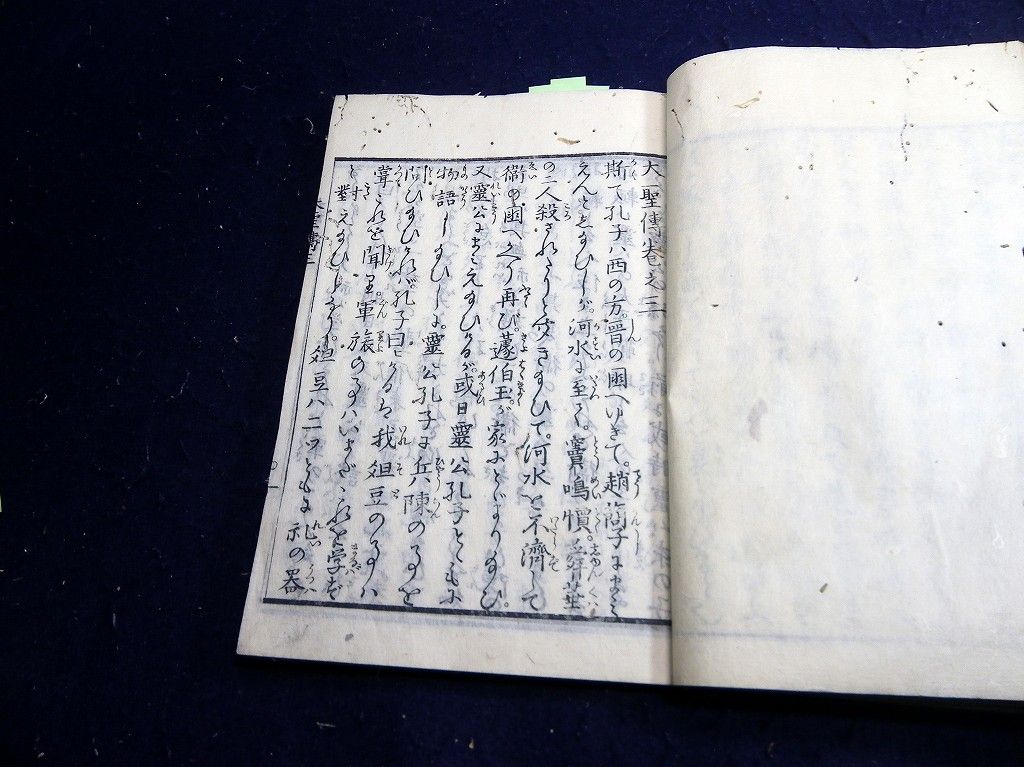 大聖傳巻之三
斯て孔子ハ西の方。晋の國へゆきて。趙簡子にまミ
えんとしたまひしが。河水に至りて。竇鳴犢。舜華
の二人殺されたりと聞きたまひて。河水を不濟して
衛の國へかへり再び。蘧伯玉が家にやどりたまひ。
又靈公にまミえたまひけるが。或日靈公孔子とともに
物語したまひしに。靈公孔子に兵陳の事を
問ひたまひければ。孔子曰ひけるは我爼豆の事ハ
甞これを聞り軍旅の事ハいまだこれを学ばず
と對えたまひしなり。爼豆ハ二ツともに礼の器